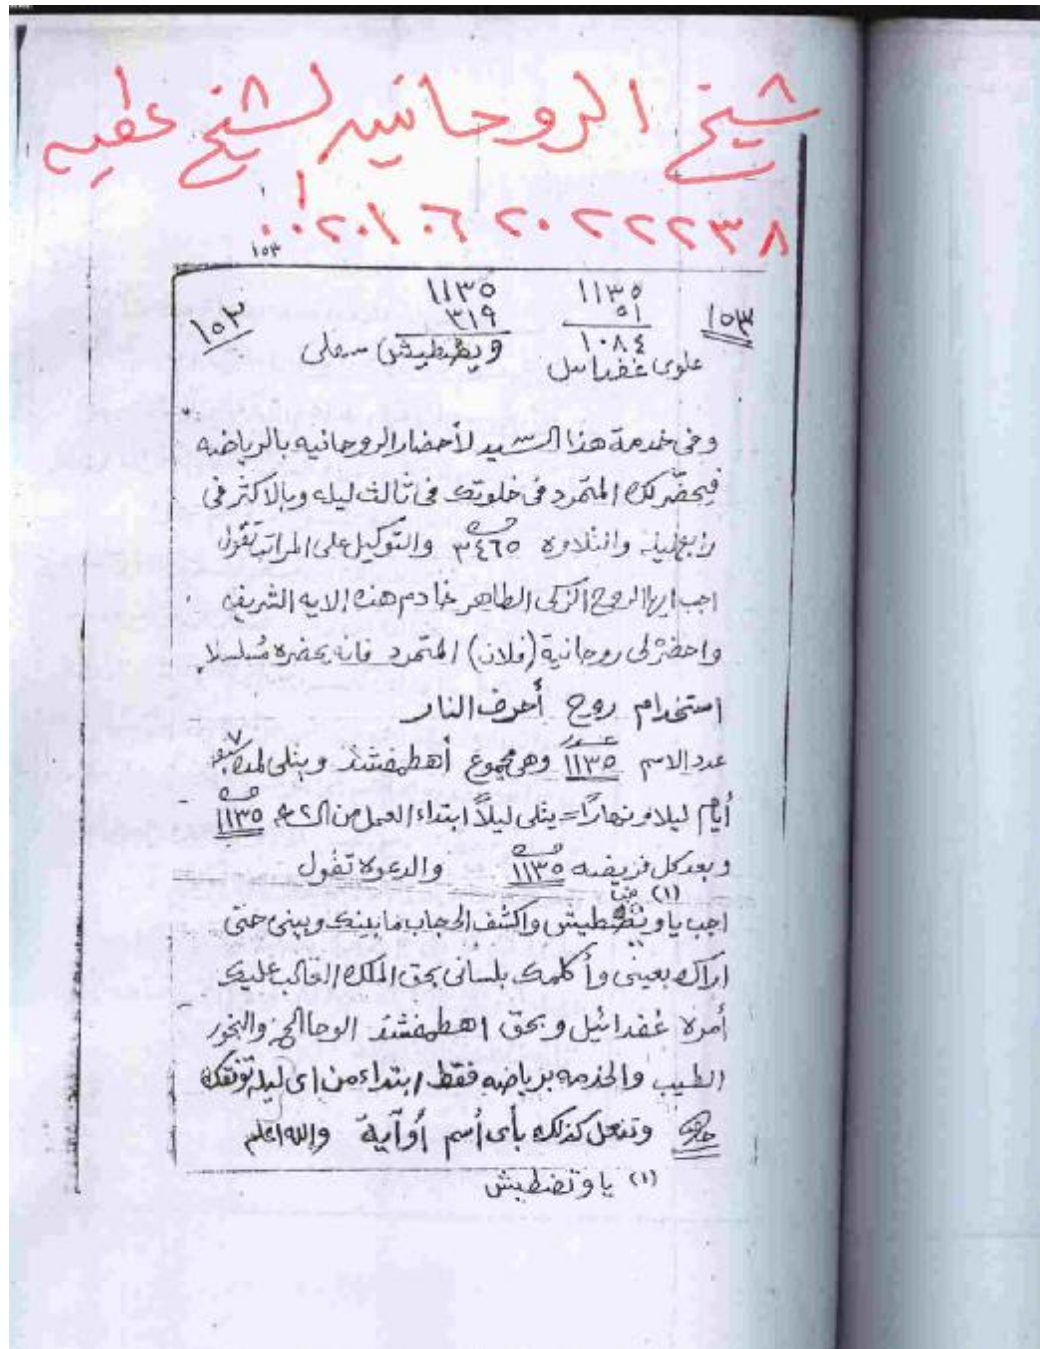 شيخ الروحانيه لشيخ عطيه
٠٠٢٠١٠٦٢٠٢٢٢٣٨
١٥٣
١٥٣ ١١٣٥ ١١٣٥ ١٥٣
٥١ ٣١٩
١٠٨٤
علوى غفدائيل سفلى
وفى خدمة هذا السيد لأحضار الروحانيه بالرياضه
فيحضّر لك المتمرد فى خلوتك فى ثالث ليله وبالاكثر فى
رابع ليله والتلاوه ٣٤٦٥ والتوكيل على المراتب تقول
اجب ايها الروح الزكى الطاهر خادم هذه الايه الشريفه
واحضر لى روحانية (فلان) المتمرد فانه يحضره مُسلسلا
استخدام روح أحرف النار
عدد الاسم ١١٣٥ وهى مجموع أهطمفشذ ويتلى لمدة ٧
أيام ليلا ونهارًا = يتلى ليلاً ابتداء العمل من ١١٣٥
وبعد كل فريضه ١١٣٥ والدعوة تقول
(١)
اجب يا واكشف الحجاب ما بينك وبينى حتى
اراك بعينى وأكلمك بلسانى بحق الملك الغالب عليك
أمره غفدائيل وبحق اهطمفشذ الوحا والبخور
الطيب والخدمه برياضه فقط ابتداء من اى ليله توفقك
وتفعل كذلك بأى أسم أو آية والله اعلم
(١) يا وتضطبش